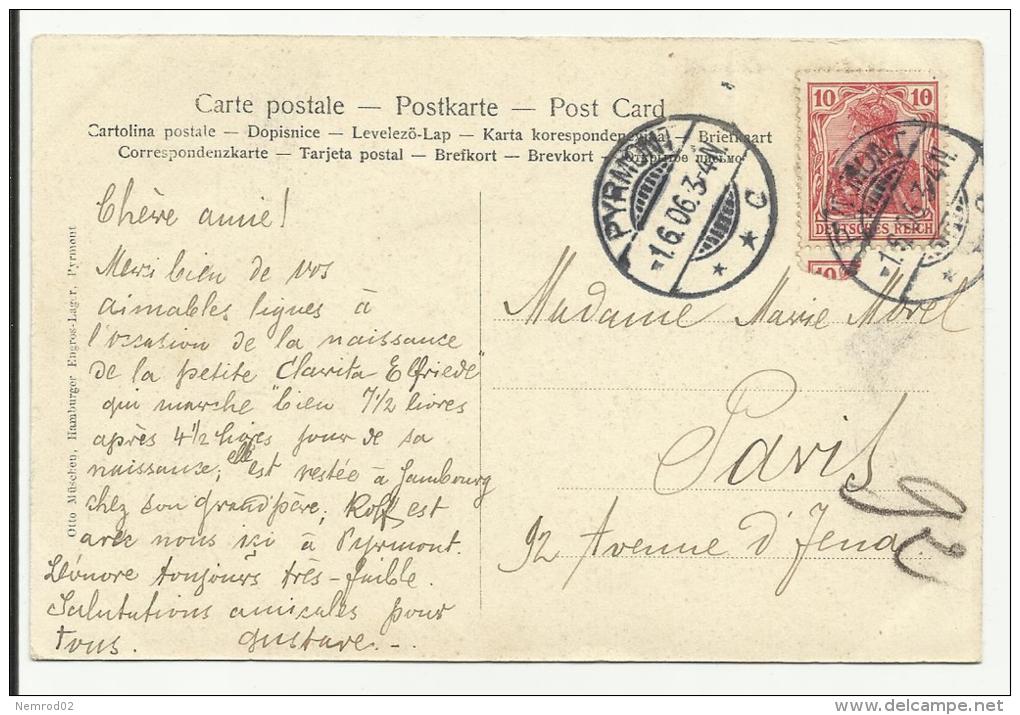 Carte postale — Postkarte — Post Card
Cartolina postale — Dopisnice — Levelező-Lap — Karta korespondencyjna — Briefkaart
Correspondenzkarte — Tarjeta postal — Brefkort — Brevkort — Открытое письмо
10 10
DEUTSCHES REICH
10
PYRMONT
1.6.06.3-4N.
C
PYRMONT
1.6.06.3-4N.
Otto Müschen, Hamburger Engros-Lager, Pyrmont
Chère amie!
Merci bien de vos
aimables lignes à
l'occasion de la naissance
de la petite "Clarita Elfriede"
qui marche bien 7 1/2 livres
après 4 1/2 livres jour de sa
naissance; elle est restée à Hambourg
chez son grandpère; Rolf est
avec nous ici à Pyrmont.
Léonore toujours très-faible.
Salutations amicales pour
tous. Gustave.-.
Madame Marie Morel
Paris
92 Avenue d'Jena
92
Nemrod02
delcampe.net